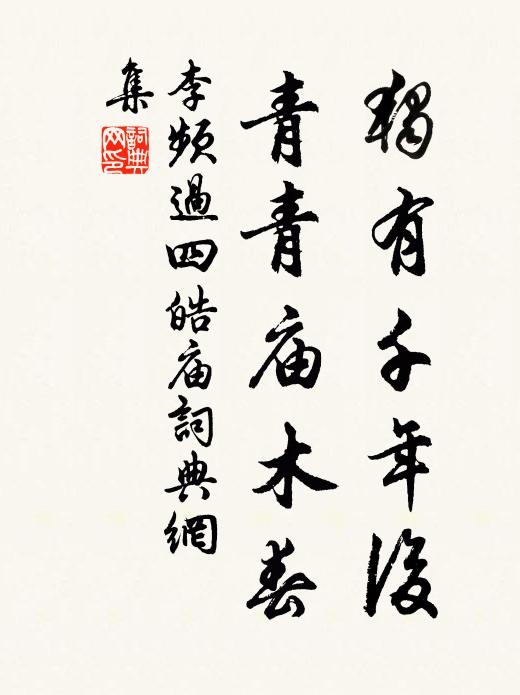 獨有千年後
青青庙木春
李頻過四皓庙詞典網
集
詞典网印